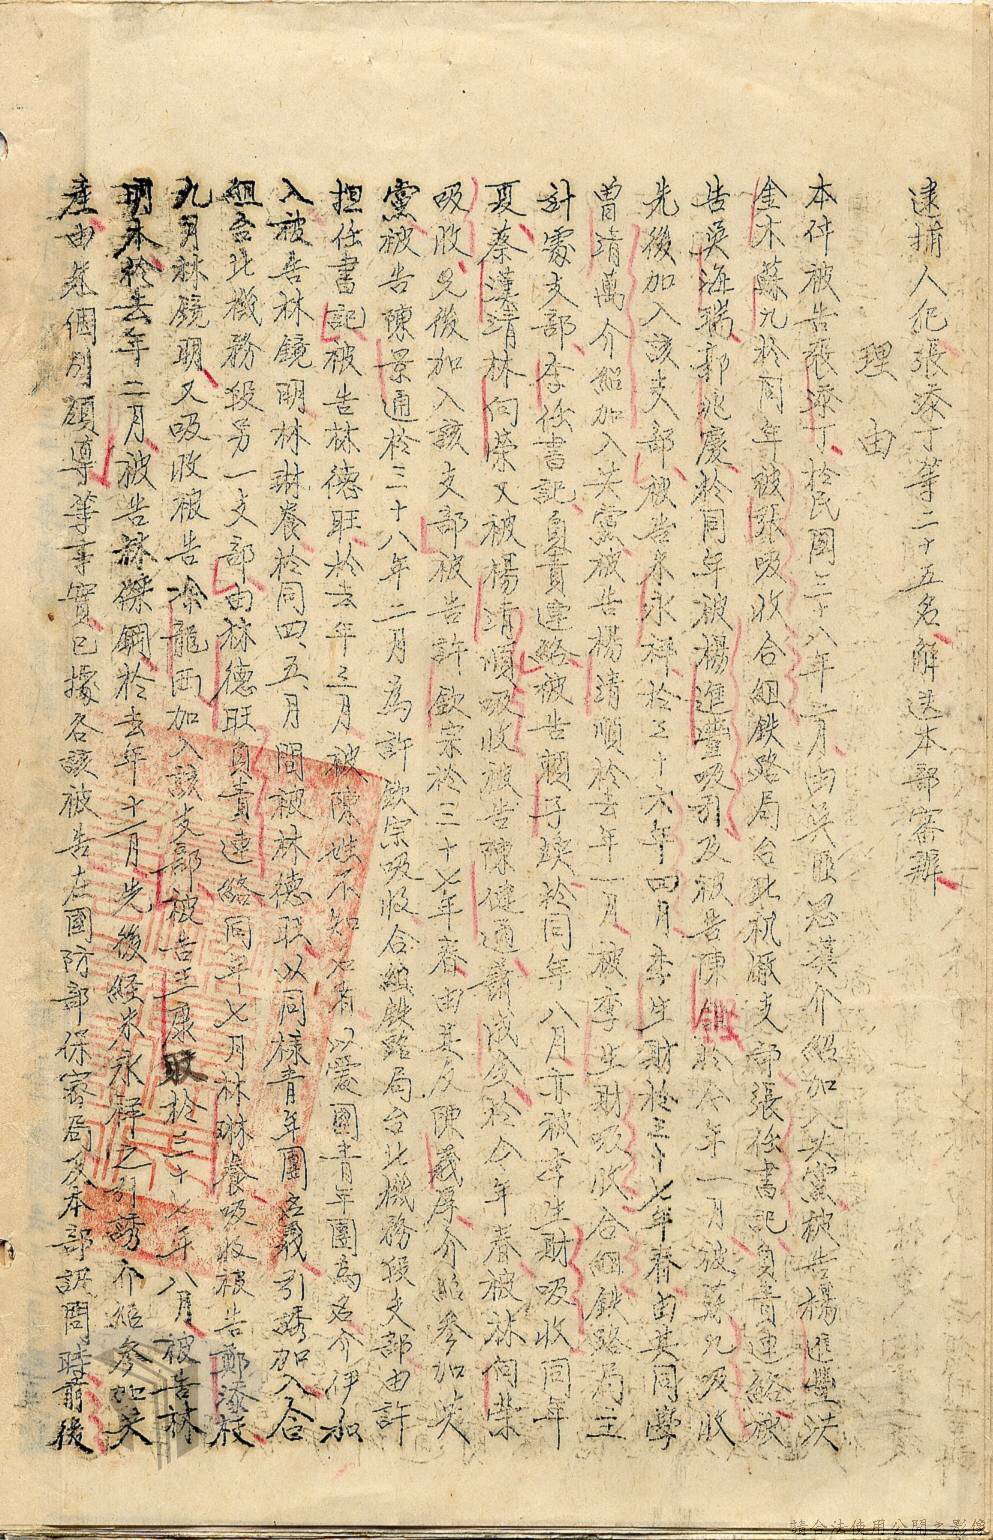 逮捕人犯張添丁等二十五名解送本部審辦
理由
本件被告張添丁於民國三十八年二月由吳匪思漢介紹加入共黨被告楊進豐洪
金木蘇九於同年被張吸收合組鉄路局台北机廠支部張任書記負責連絡被
告吳海瑞郭兆慶於同年被楊進豐吸引及被告陳於今年一月被蘇九吸收
先後加入該支部被告朱永祥於三十六年四月李生財於三十七年春由其同學
曾靖萬介紹加入共黨被告楊清順於去年一月被李生財吸收合組鉄路局主
計處支部李任書記負責連絡被告賴子煐於同年八月亦被李生財吸收同年
夏蔡漢清林向榮又被楊靖順吸收被告陳健通蕭成金於今年春被林向榮
吸收先後加入該支部被告許欽宗於三十七年春由其友陳義厚介紹參加共
黨被告陳景通於三十八年二月為許欽宗吸收合組鉄路局台北機務段支部由許
担任書記被告林德旺於去年三月被陳姓不知名者以愛國青年團為名介伊加
入被告林鏡明林琳養於同四、五月間被林德旺以同樣青年團名義引誘加入合
組台北機務段另一支部由林德旺負責連絡同年七月林琳養吸收被告鄭添枝
九月林鏡明又吸收被告涂龍西加入該支部被告王康取於三十七年八月被告林
明木於去年二月被告林傑鋼於去年十一月先後經朱永祥之引誘介紹參加共
產由是個別領導等事實已據各該被告在國防部保密局及本部訊問時前後
請合法使用公開之影像